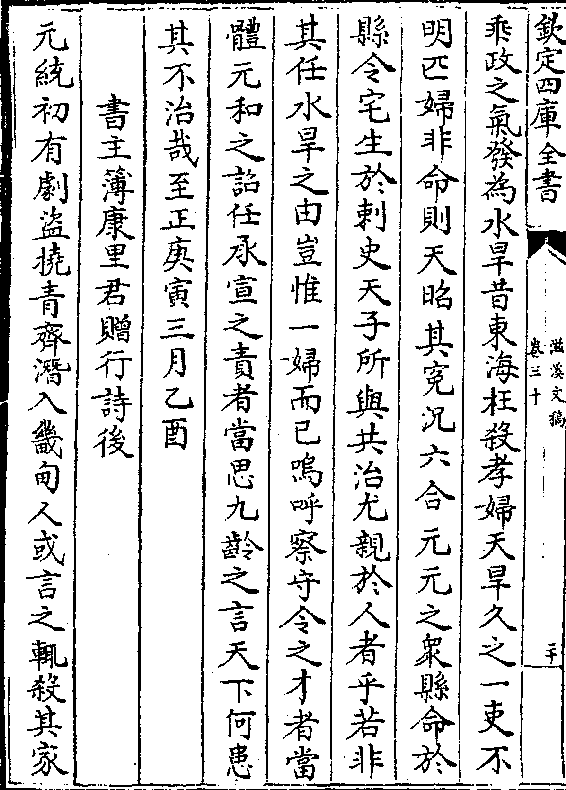 欽定四庫全書
滋溪文稿
卷三十
二十
乖政之氣發為水旱昔東海枉殺孝婦天旱久之一吏不
明匹婦非命則天昭其寃況六合元元之衆縣命於
縣令宅生於刺史天子所與共治尤親於人者乎若非
其任水旱之由豈惟一婦而已嗚呼察守令之才者當
體元和之詔任承宣之責者當思九齡之言天下何患
其不治哉至正庚寅三月乙酉
書主簿康里君贈行詩後
元統初有劇盜撓青齊潛入畿甸人或言之輒殺其家